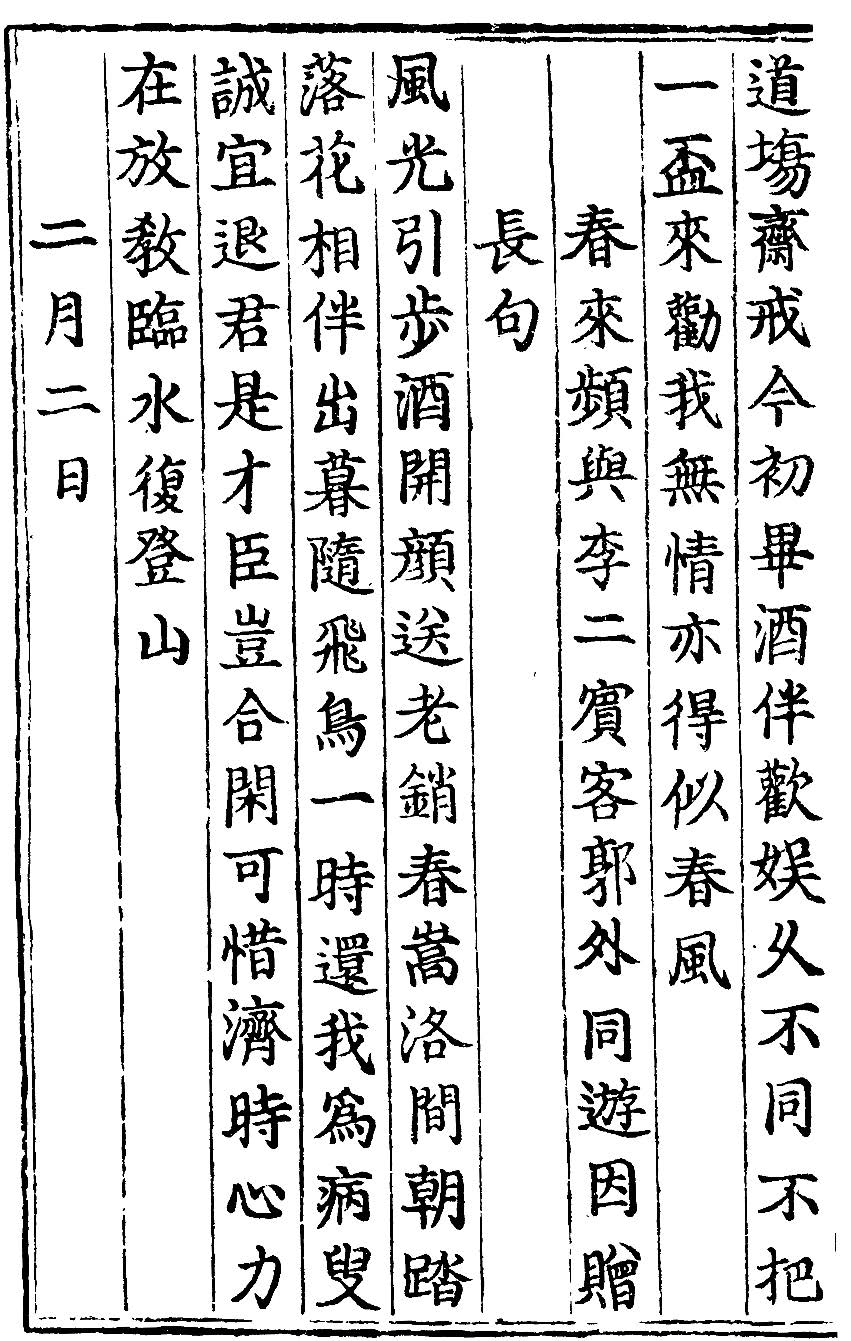 道塲齋戒今初畢酒伴歡娱乆不同不把
一盃來勸我無情亦得似春風
春來頻與李二賔客郭外同遊因贈
長句
風光引歩酒開顔送老銷春嵩洛間朝踏
落花相伴出暮隨飛鳥一時還我爲病叟
誠宜退君是才臣豈合閑可惜濟時心力
在放教臨水復登山
二月二日